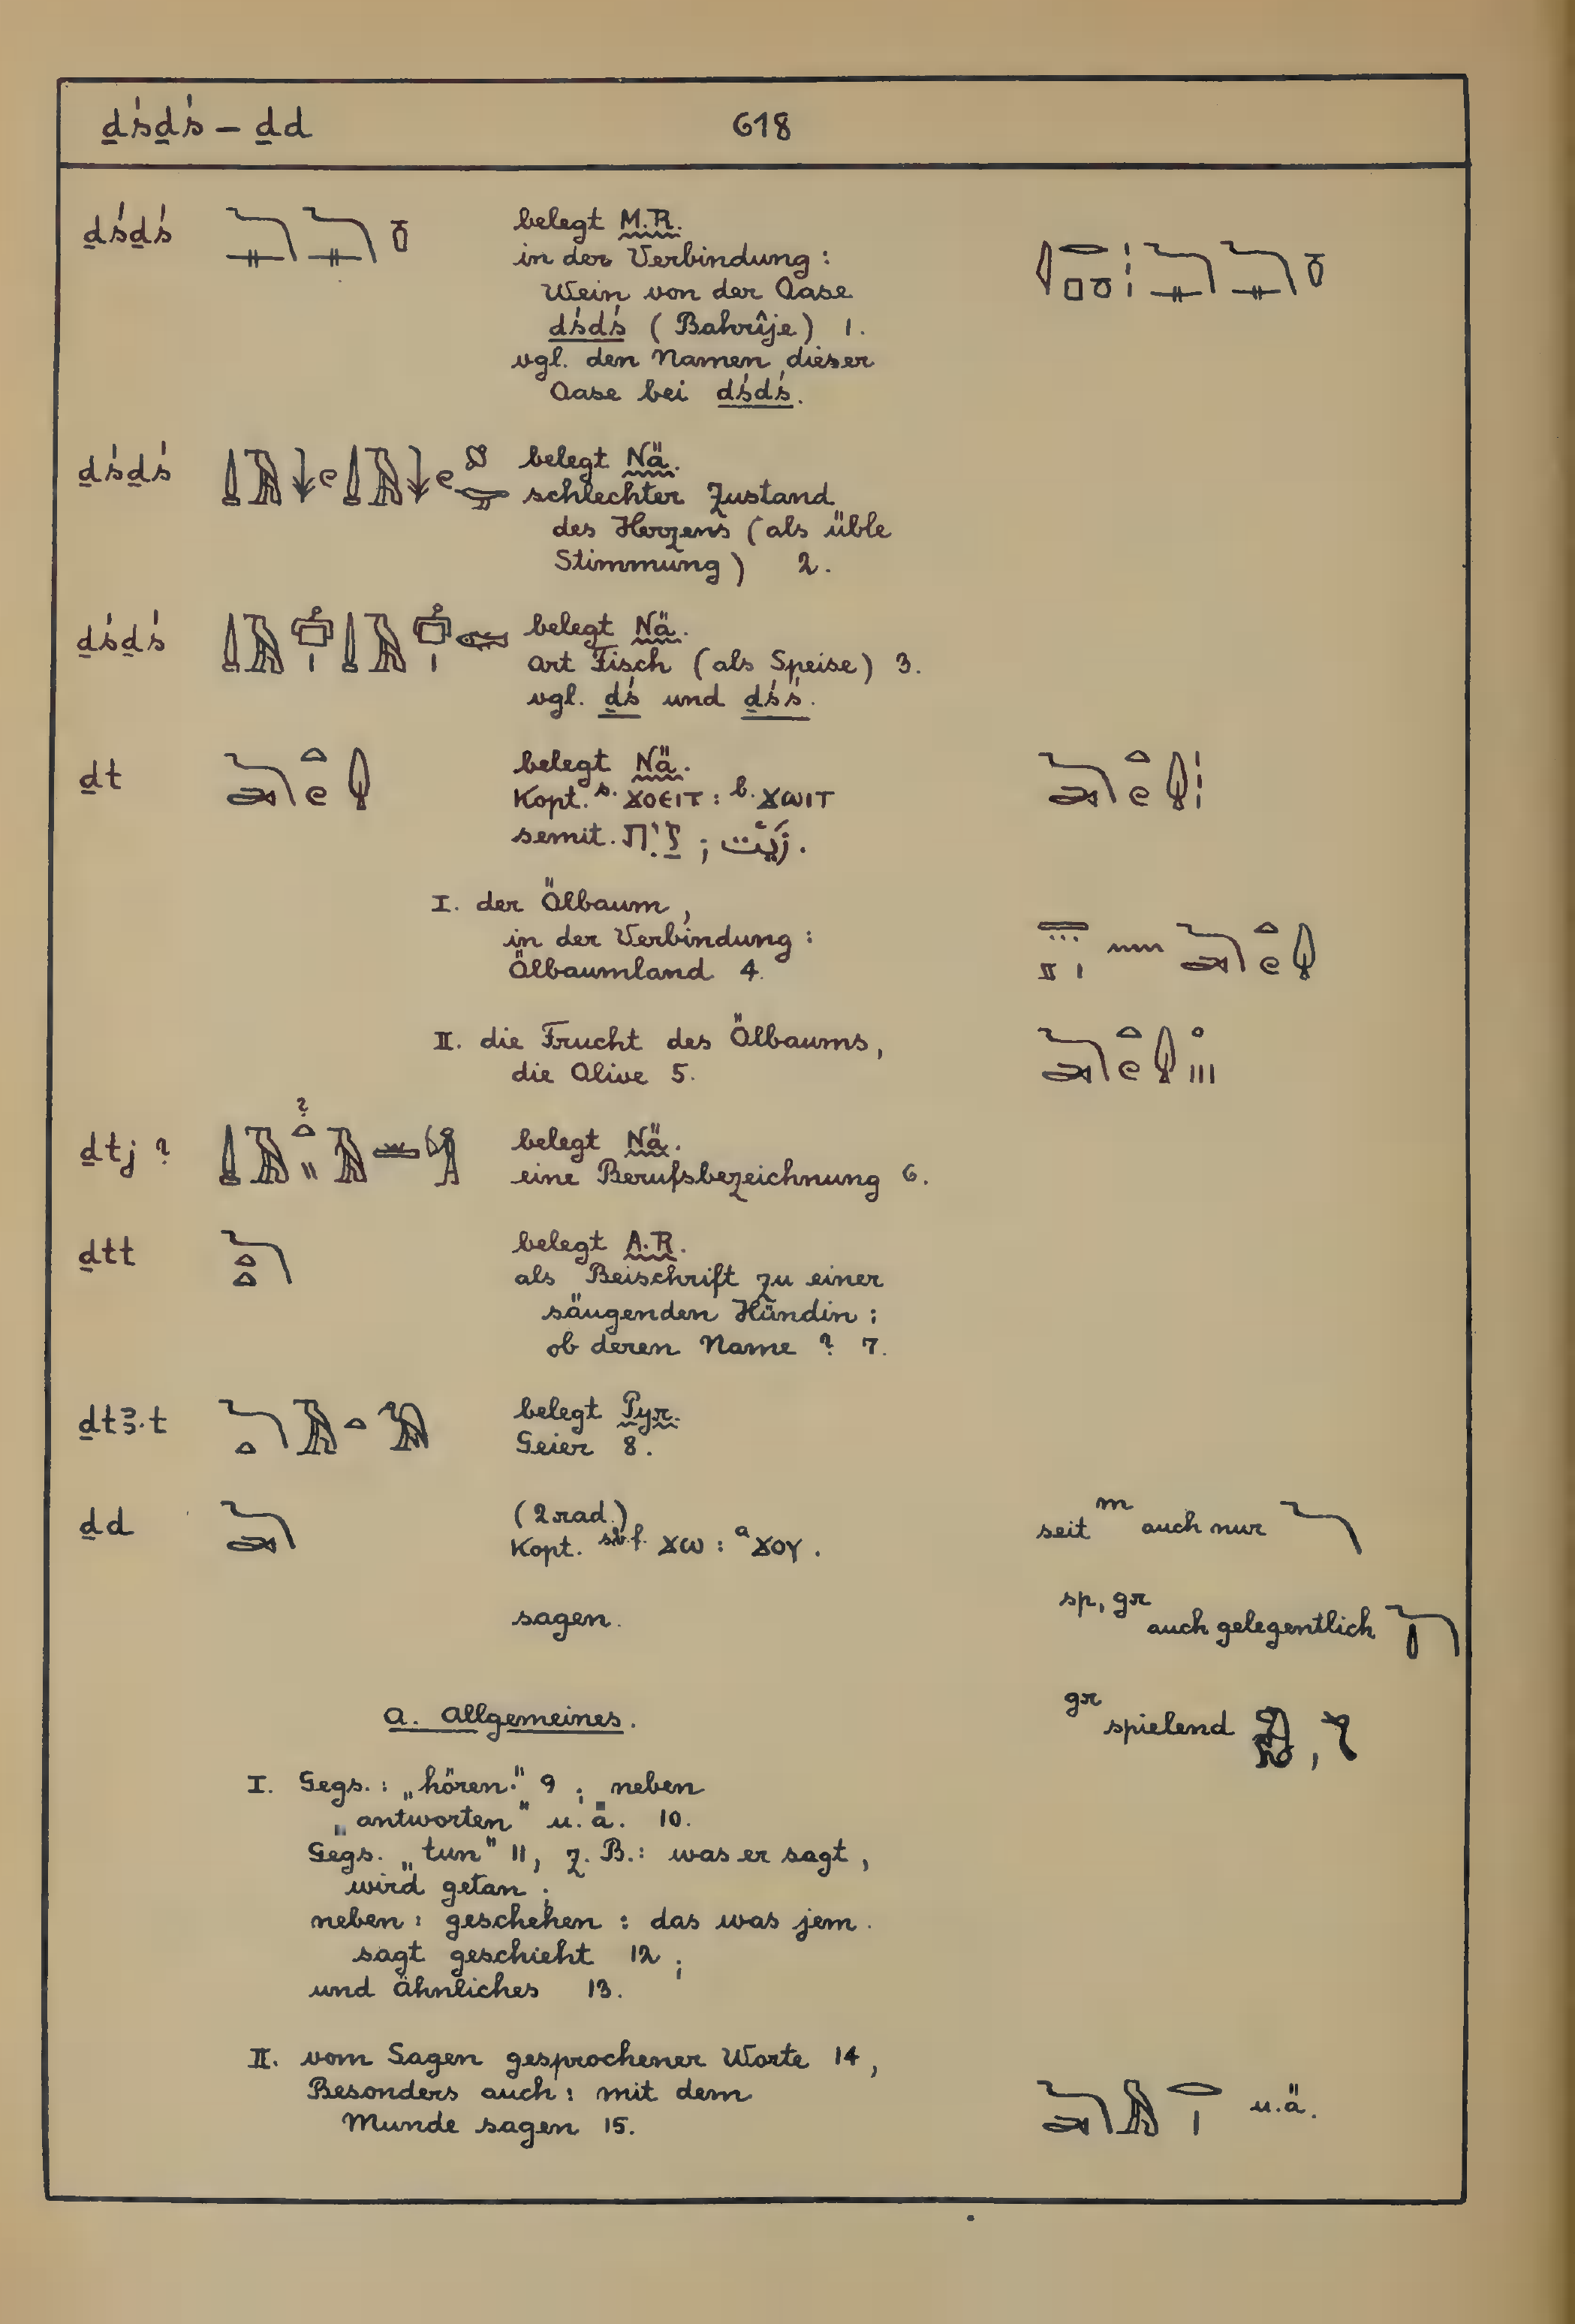 ḏśḏś – ḏd 618
ḏśḏś belegt M.R.
in der Verbindung:
Wein von der Oase
ḏśḏś (Bahrîje) 1.
vgl. den Namen dieser
Oase bei ḏśḏś.
ḏśḏś belegt Nä.
schlechter Zustand
des Herzens (als üble
Stimmung) 2.
ḏśḏś belegt Nä.
Art Fisch (als Speise) 3.
vgl. ḏś und ḏśś.
ḏt belegt Nä.
Kopt. s. ϫοειτ : b. ϫωιτ
semit. זַיִת ; زَيْت .
I. der Ölbaum,
in der Verbindung:
Ölbaumland 4.
II. die Frucht des Ölbaums,
die Olive 5.
ḏtj ? belegt Nä.
eine Berufsbezeichnung 6.
ḏtt belegt A.R.
als Beischrift zu einer
säugenden Hündin;
ob deren Name ? 7.
ḏtꜣ.t belegt Pyr.
Geier 8.
ḏd (2rad.) seit m auch nur
Kopt. sbf. ϫω : a ϫου .
sp, gr auch gelegentlich
sagen.
gr spielend
a. Allgemeines.
I. Gegs.: „hören“ 9 ; neben
„antworten“ u. ä. 10.
Gegs. „tun“ 11, z. B.: was er sagt,
wird getan ;
neben: geschehen : das was jem.
sagt geschieht 12 ;
und ähnliches 13.
II. vom Sagen gesprochener Worte 14,
Besonders auch: mit dem
Munde sagen 15. u.ä.